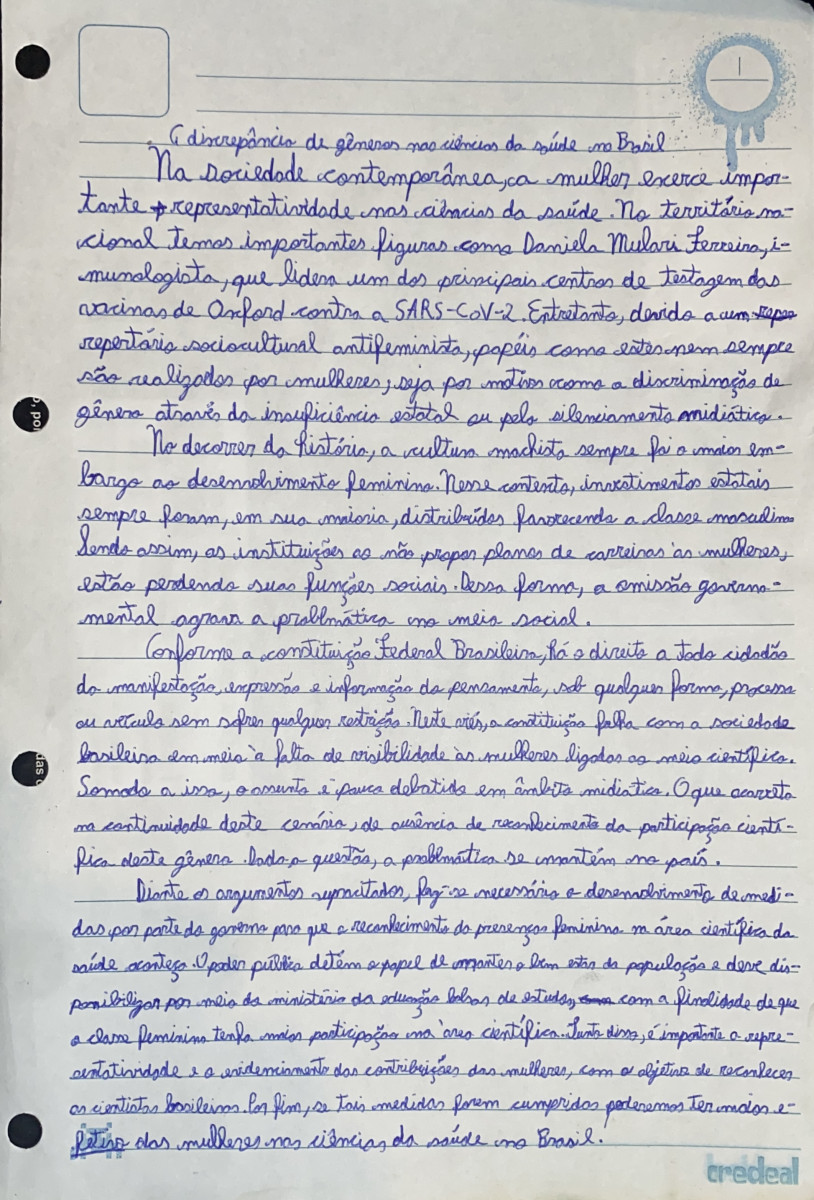 A discrepância de gêneros nas ciências da saúde no Brasil
Na sociedade contemporânea, a mulher exerce impor-
tante representatividade nas ciências da saúde. No território na-
cional temos importantes figuras como Daniela Mulari Ferreira, i-
munologista, que lidera um dos principais centros de testagem das
vacinas de Oxford contra a SARS-CoV-2. Entretanto, devido a um repe
repertório sociocultural antifeminista, papéis como estes nem sempre
são realizados por mulheres, seja por motivos como a discriminação de
gênero através da insuficiência estatal ou pelo silenciamento midiático.
No decorrer da história, a cultura machista sempre foi o maior em-
bargo ao desenvolvimento feminino. Nesse contexto, investimentos estatais
sempre foram, em sua maioria, distribuídos favorecendo a classe masculina
Sendo assim, as instituições ao não propor planos de carreiras às mulheres,
estão perdendo suas funções sociais. Dessa forma, a omissão governa-
mental agrava a problmática no meio social.
Conforme a constituição Federal Brasileira, há o direito a todo cidadão
da manifestação, expressão e informação do pensamento, sob qualquer forma, processo
ou veículo sem sofrer qualquer restrição. Neste viés, a constituição falha com a sociedade
brasileira em meio à falta de visibilidade às mulheres ligadas ao meio científico.
Somado a isso, o assunto é pouco debatido em âmbito midiático. O que acarreta
na continuidade deste cenário, de ausência de reconhecimento da participação cientí-
fica deste gênero. Dada a questão, a problmática se mantém no país.
Diante os argumentos supracitados, faz-se necessário o desenvolvimento de medi-
das por parte do governo para que o reconhecimento da presença feminina na área científica da
saúde aconteça. O poder público detém o papel de manter o bem estar da população e deve dis-
ponibilizar por meio do ministério da educação bolsas de estudos, com a finalidade de que
a classe feminina tenha maior participação na área científica. Junto disso, é importante a repre-
sentatividade e o evidenciamento das contribuições das mulheres, com o objetivo de reconhecer
as cientistas brasileiras. Por fim, se tais medidas forem cumpridas poderemos ter maior e-
fetivo das mulheres nas ciências da saúde no Brasil.
credeal